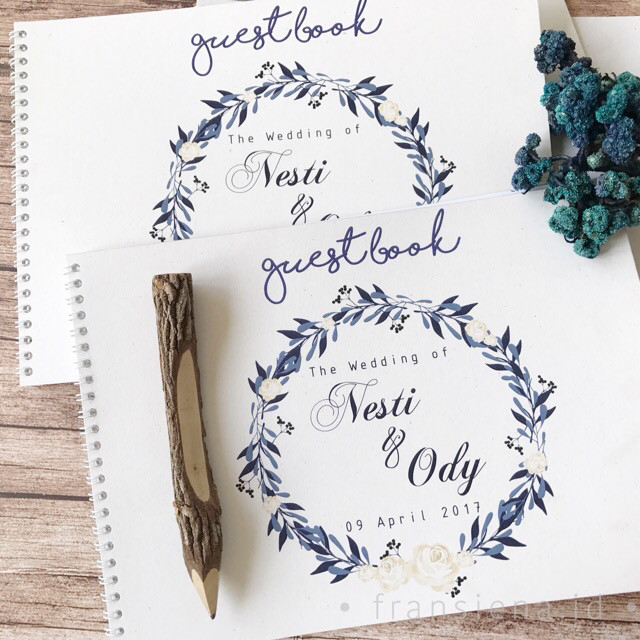 guestbook
The Wedding of
Nesti
&
guestbook
The Wedding of
Nesti
&
Ody
09 April 2017